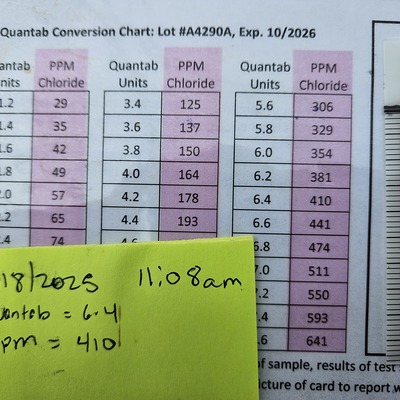 Quantab Conversion Chart: Lot #A4290A, Exp. 10/2026
antab PPM Quantab PPM Quantab PPM
nits Chloride Units Chloride Units Chloride
1.2 29 3.4 125 5.6 306
1.4 35 3.6 137 5.8 329
1.6 42 3.8 150 6.0 354
1.8 49 4.0 164 6.2 381
2.0 57 4.2 178 6.4 410
2.2 65 4.4 193 6.6 441
2.4 74 4.6 6.8 474
7.0 511
7.2 550
7.4 593
7.6 641
18/2025 11:08am
uantab = 6.4
ppm = 410
of sample, results of test
icture of card to report w